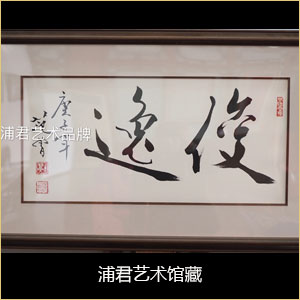 俊逸
庚子年
浦君艺术品牌
浦君艺术馆藏